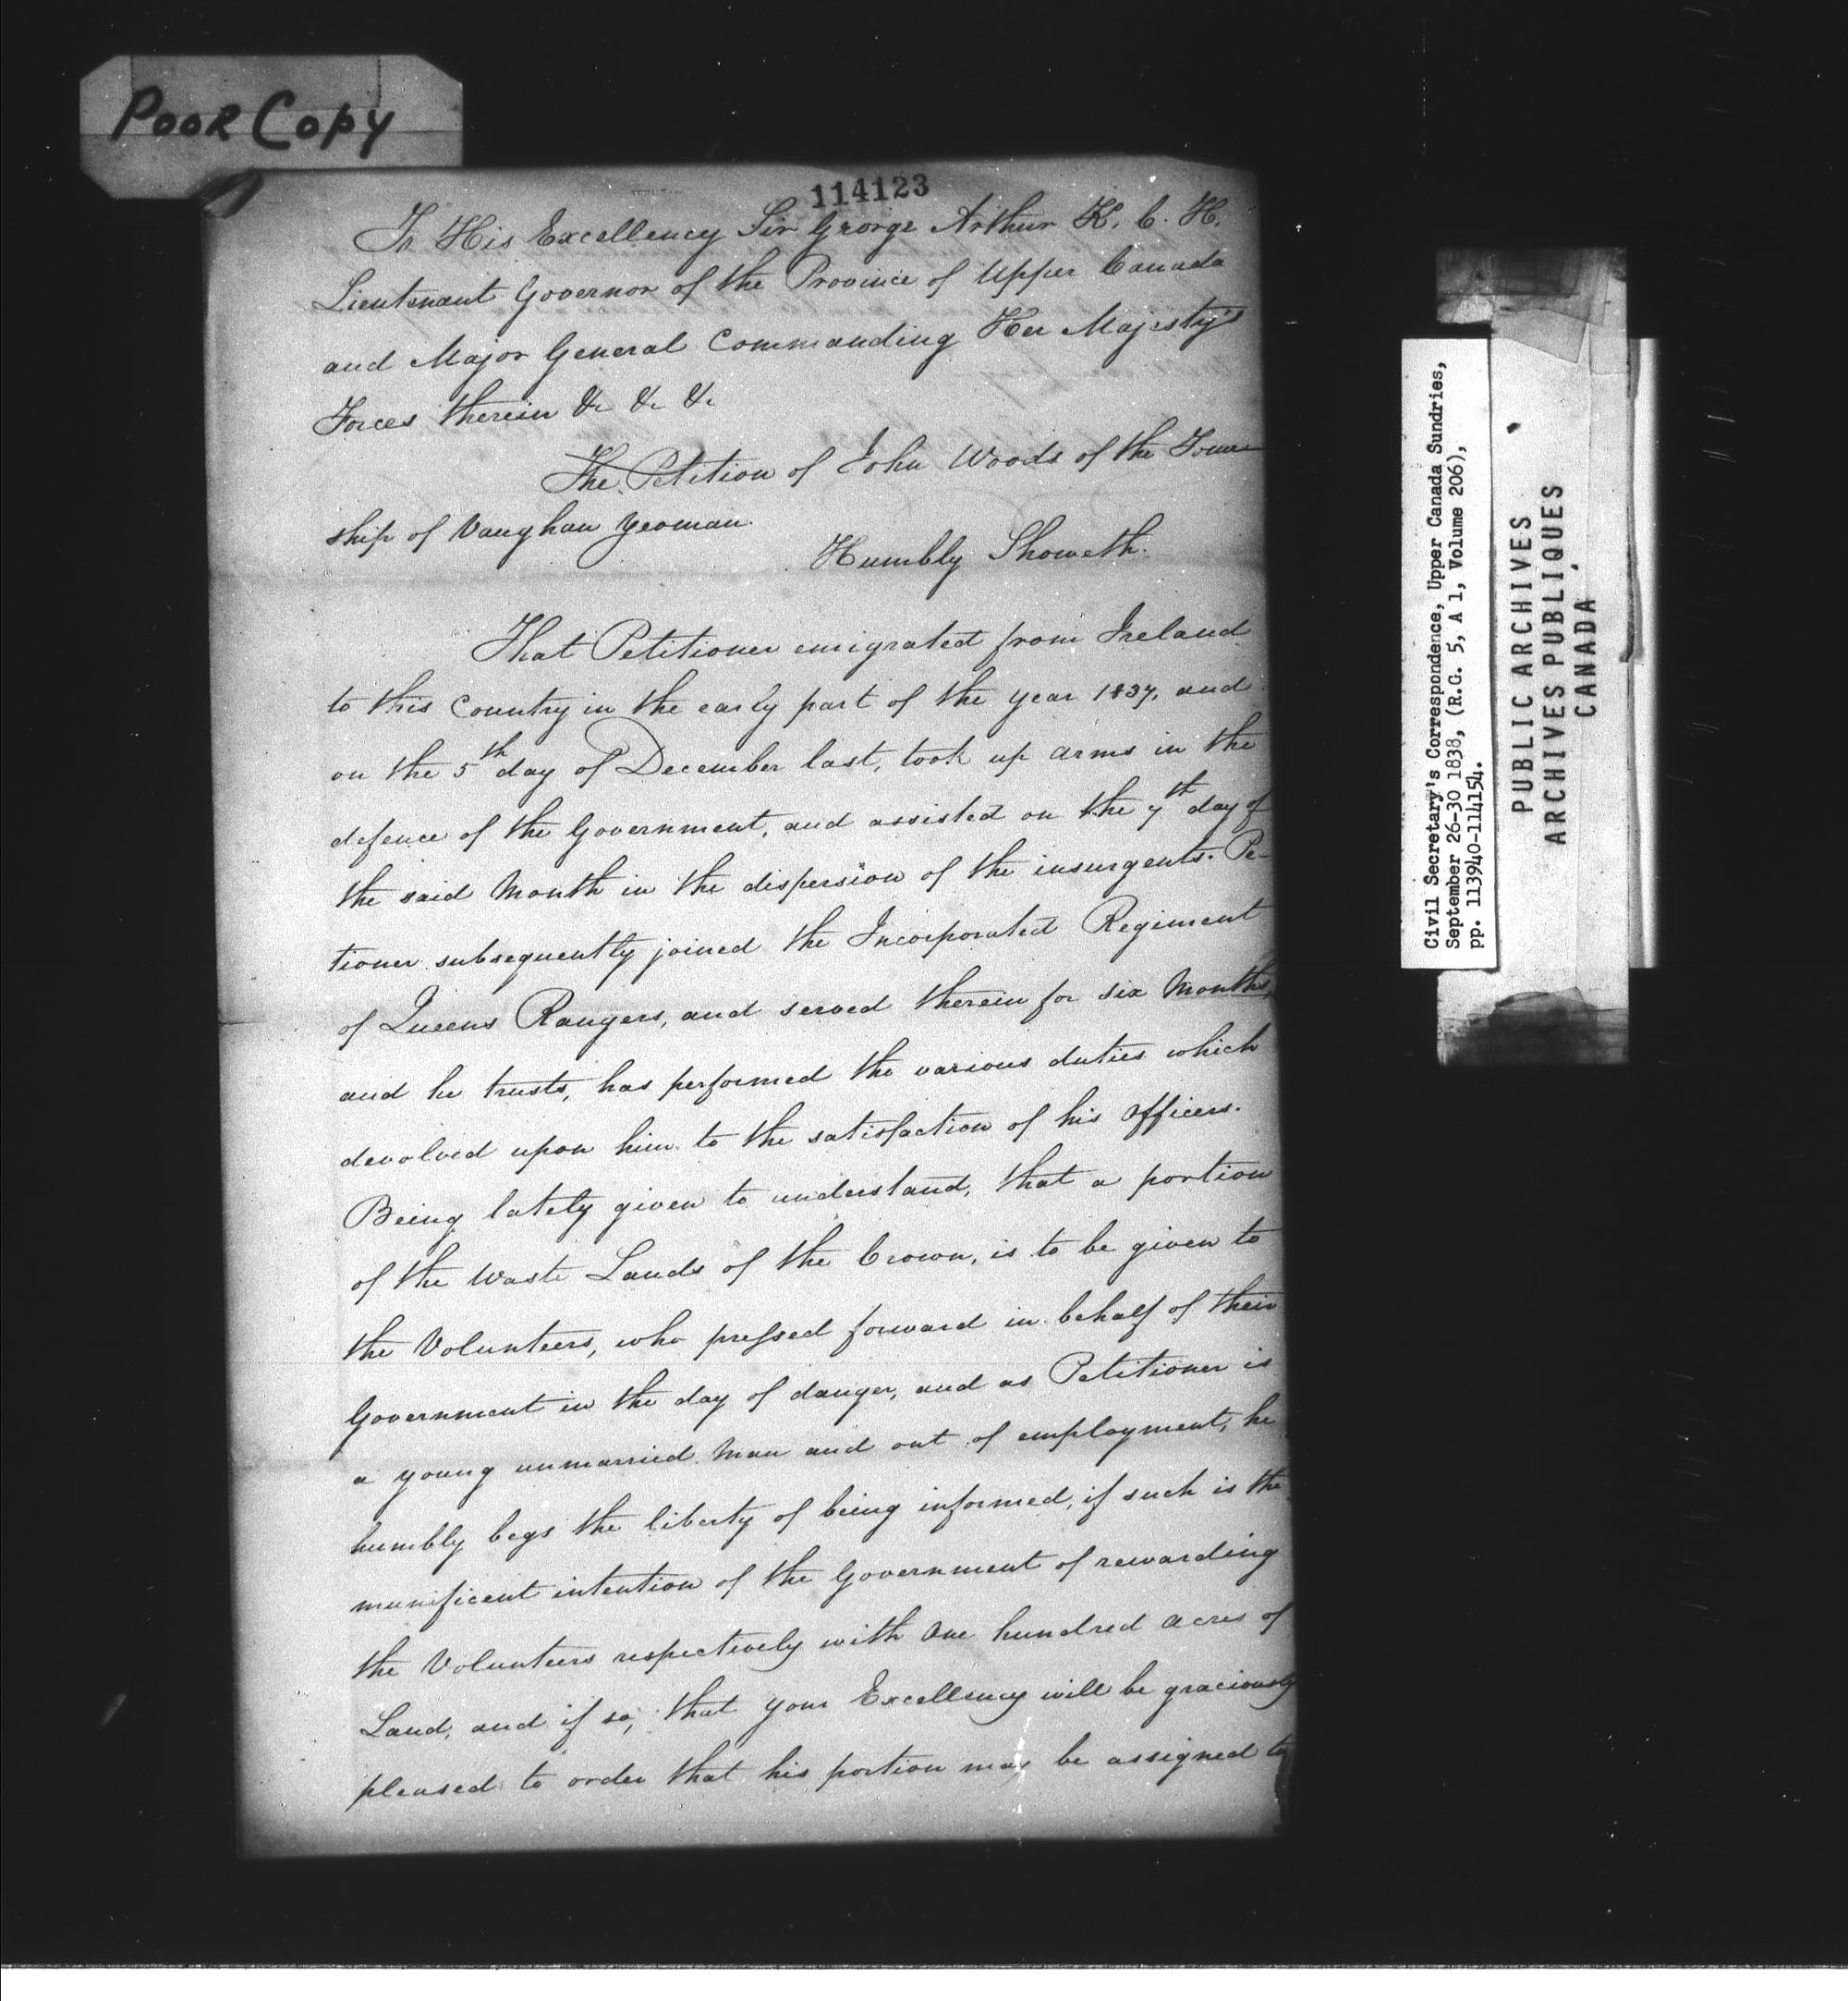 POOR COPY
114123
To His Excellency Sir George Arthur K. C. H.
Lieutenant Governor of the Province of Upper Canada
and Major General Commanding Her Majesty's
Forces therein &c &c &c
The Petition of John Woods of the Town
ship of Vaughan Yeoman.
Humbly Showeth.
That Petitioner emigrated from Ireland
to this Country in the early part of the year 1837, and
on the 5th day of December last, took up arms in the
defence of the Government, and assisted on the 7th day of
the said Month in the dispersion of the insurgents. Pe-
tioner subsequently joined the Incorporated Regiment
of Queens Rangers, and served therein for six Months,
and he trusts, has performed the various duties which
devolved upon him to the satisfaction of his Officers.
Being lately given to understand, that a portion
of the Waste Lands of the Crown, is to be given to
the Volunteers, who pressed forward in behalf of their
Government in the day of danger, and as Petitioner is
a young unmarried Man and out of employment, he
humbly begs the liberty of being informed, if such is the
munificent intention of the Government of rewarding
the Volunteers respectively with One hundred acres of
Land, and if so, that your Excellency will be graciously
pleased to order that his portion may be assigned to
Civil Secretary's Correspondence, Upper Canada Sundries,
September 26-30 1838, (R.G. 5, A 1, Volume 206),
pp. 113940-114154.
PUBLIC ARCHIVES
ARCHIVES PUBLIQUES
CANADA